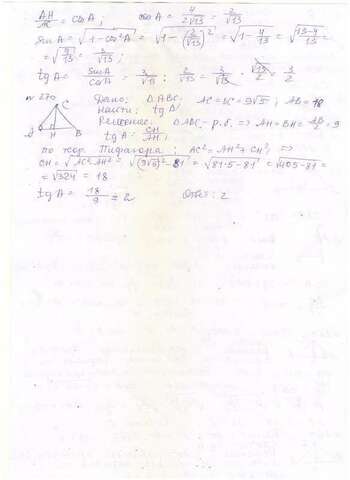 AH/AC = cos A; cos A = 4/2√13 = 2/√13
sin A = √1-cos²A = √1-(2/√13)² = √1-4/13 = √13-4/13 =
= √9/13 = 3/√13;
tg A = sin A/cos A = 3/√13 : 2/√13 = 3/√13 · √13/2 = 3/2
№ 270
C
A H B
Дано: △ABC. AC=BC=9√5; AB=18
Найти: tg A
Решение: △ABC - р.б. => AH=BH=AB/2=9
tg A = CH/AH;
по теор. Пифагора: AC²=AH²+CH²; =>
CH = √AC²-AH² = √(9√5)²-81 = √81·5-81 = √405-81 =
= √324 = 18
tg A = 18/9 = 2 Ответ: 2